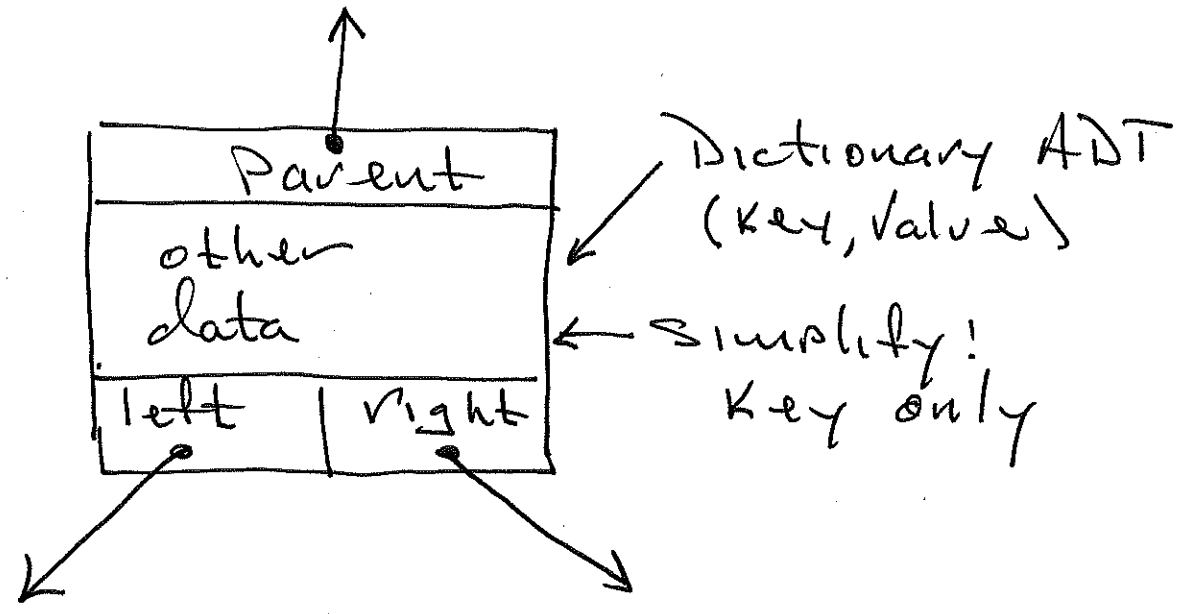 Parent
other
data
left
right
Dictionary ADT
(Key, Value)
Simplify!
Key only